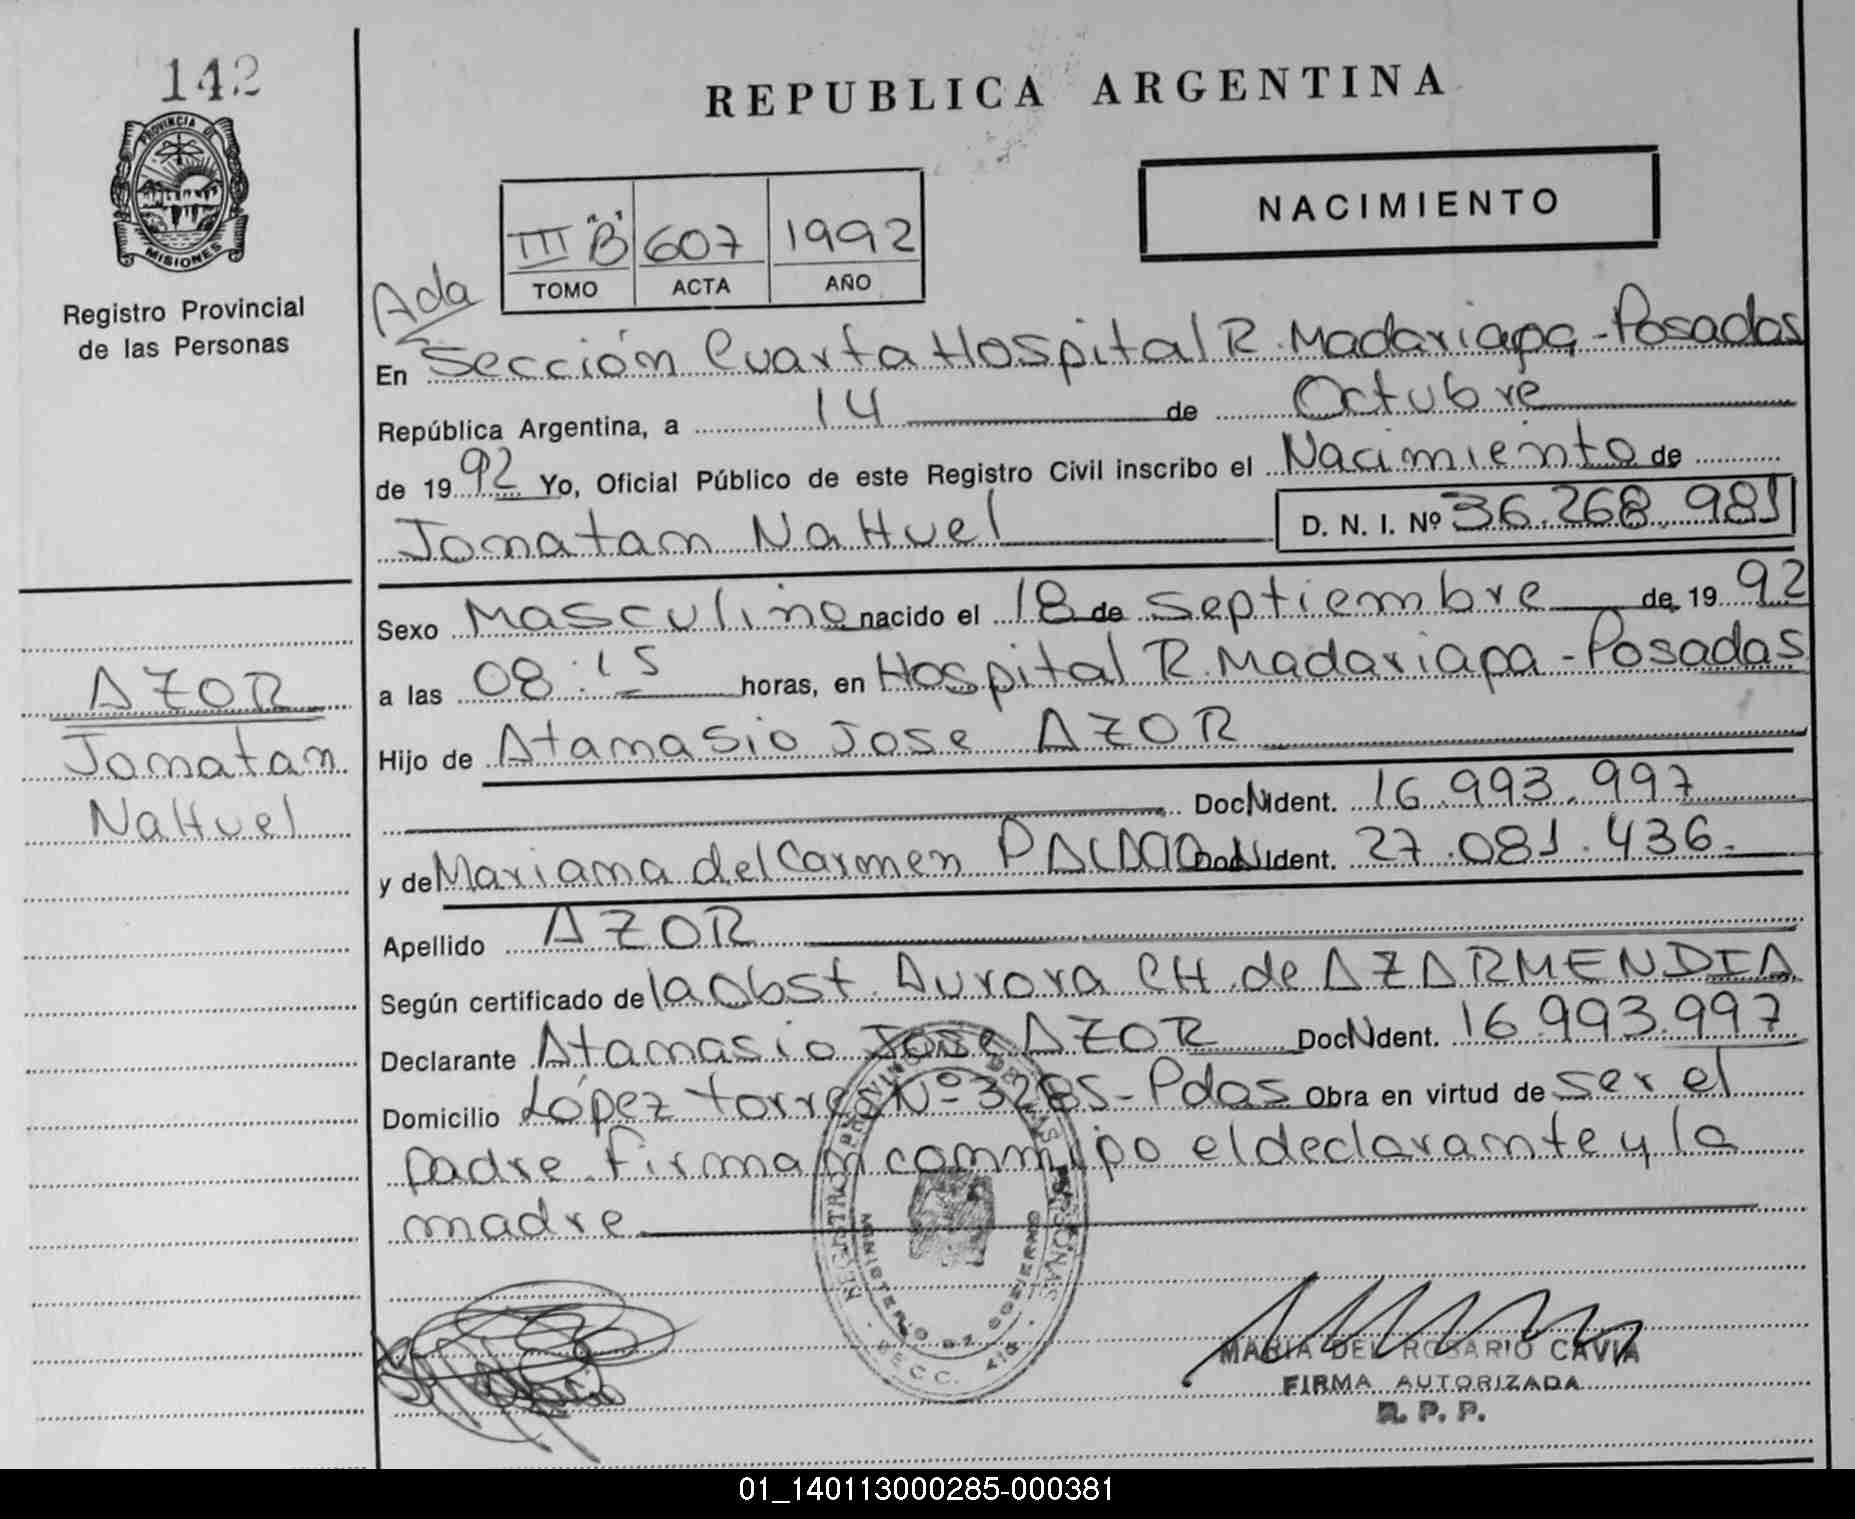 142
PROVINCIA DE
MISIONES
Registro Provincial
de las Personas
REPUBLICA ARGENTINA
NACIMIENTO
III "B" 607 1992
TOMO ACTA AÑO
Ada
En Sección Cuarta Hospital R. Madariaga - Posadas
República Argentina, a 14 de Octubre
de 1992 Yo, Oficial Público de este Registro Civil inscribo el Nacimiento de
Jonatan NaHuel D. N. I. Nº 36.268.981
Sexo Masculino nacido el 18 de septiembre de 1992
a las 08:15 horas, en Hospital R. Madariaga - Posadas
Hijo de Atanasio Jose AZOR
Doc. Ident. 16.993.997
y de Mariana del Carmen Doc. Ident. 27.081.436.
Apellido AZOR
Según certificado de la Obst. Aurora CH. de AZARMENDIA
Declarante Atanasio Jose AZOR Doc. Ident. 16.993.997
Domicilio López torres Nº 3285 - Pdas Obra en virtud de ser el
padre. firman conmigo el declarante y la
madre
AZOR
Jonatan
NaHuel
REGISTRO PROVINCIAL DE LAS PERSONAS
MINISTERIO DE GOBIERNO
SECC. 4ta
MARIA DEL ROSARIO CAVIA
FIRMA AUTORIZADA
R. P. P.
01_140113000285-000381